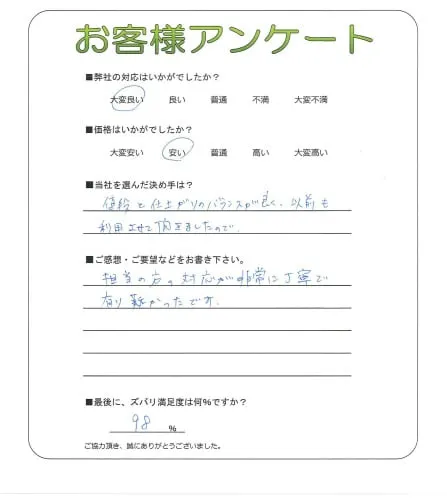 お客様アンケート
■弊社の対応はいかがでしたか？
大変良い 良い 普通 不満 大変不満
■価格はいかがでしたか？
大変安い 安い 普通 高い 大変高い
■当社を選んだ決め手は？
値段と仕上がりのバランスが良く、以前も
利用させて頂きましたので。
■ご感想・ご要望などをお書き下さい。
担当の方の対応が非常に丁寧で
有り難かったです。
■最後に、ズバリ満足度は何％ですか？
98 ％
ご協力頂き、誠にありがとうございました。